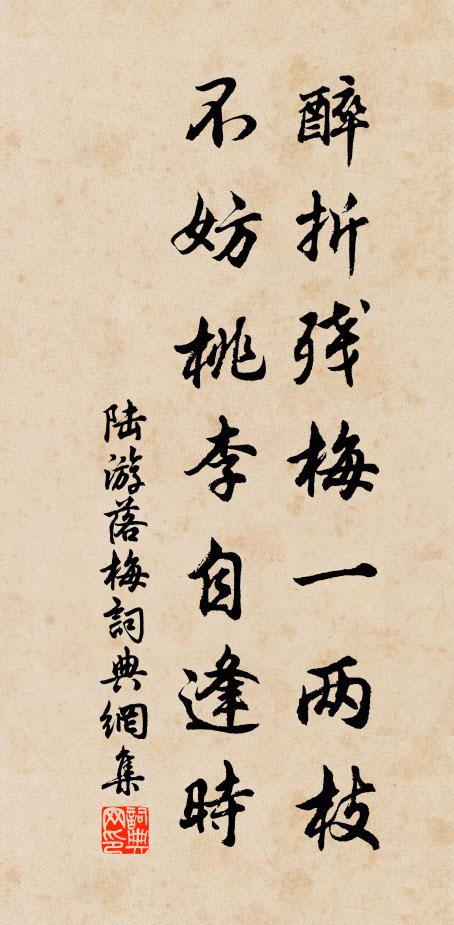 醉折残梅一两枝
不妨桃李自逢時
陆游落梅詞典網集
詞典网印